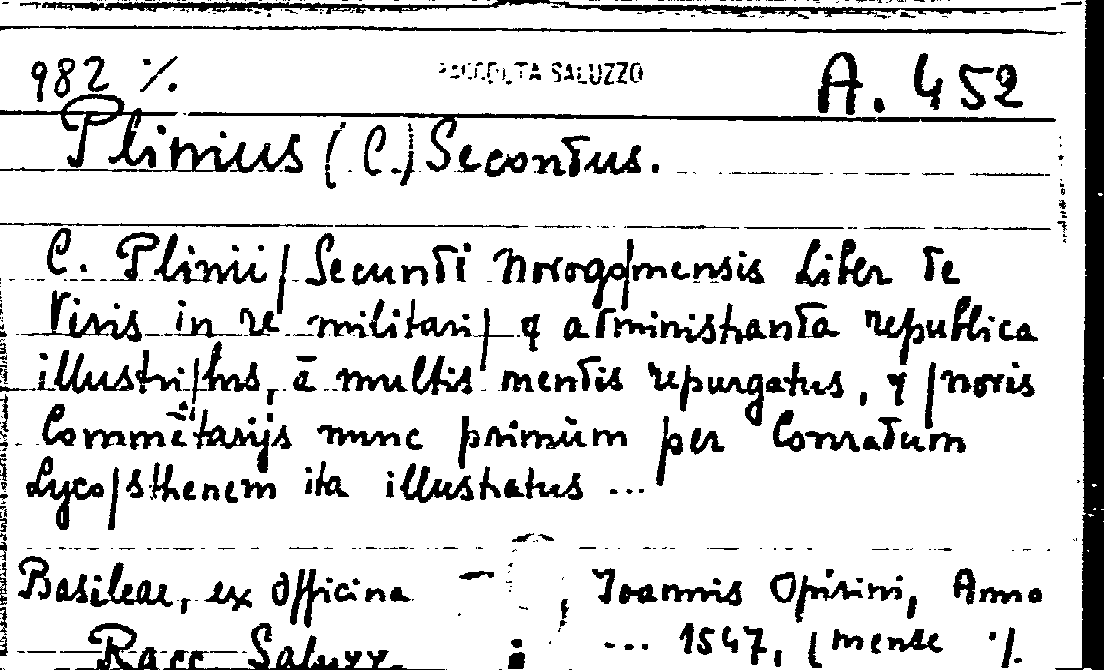 982 ·/. RACCOLTA SALUZZO A. 452
Plinius (C.) Secondus.
C. Plinii/ Secundi Novoco/mensis Liber de
Viris in re militari/ & administranda republica
illustri/bus, ā multis mendis repurgatus, & /novis
Commētarijs nunc primùm per Conradum
Lyco/sthenem ita illustratus ...
Basileae, ex Officina , Ioannis Oporini, Anno
Racc. Saluzz. ... 1547, (mense ·/.